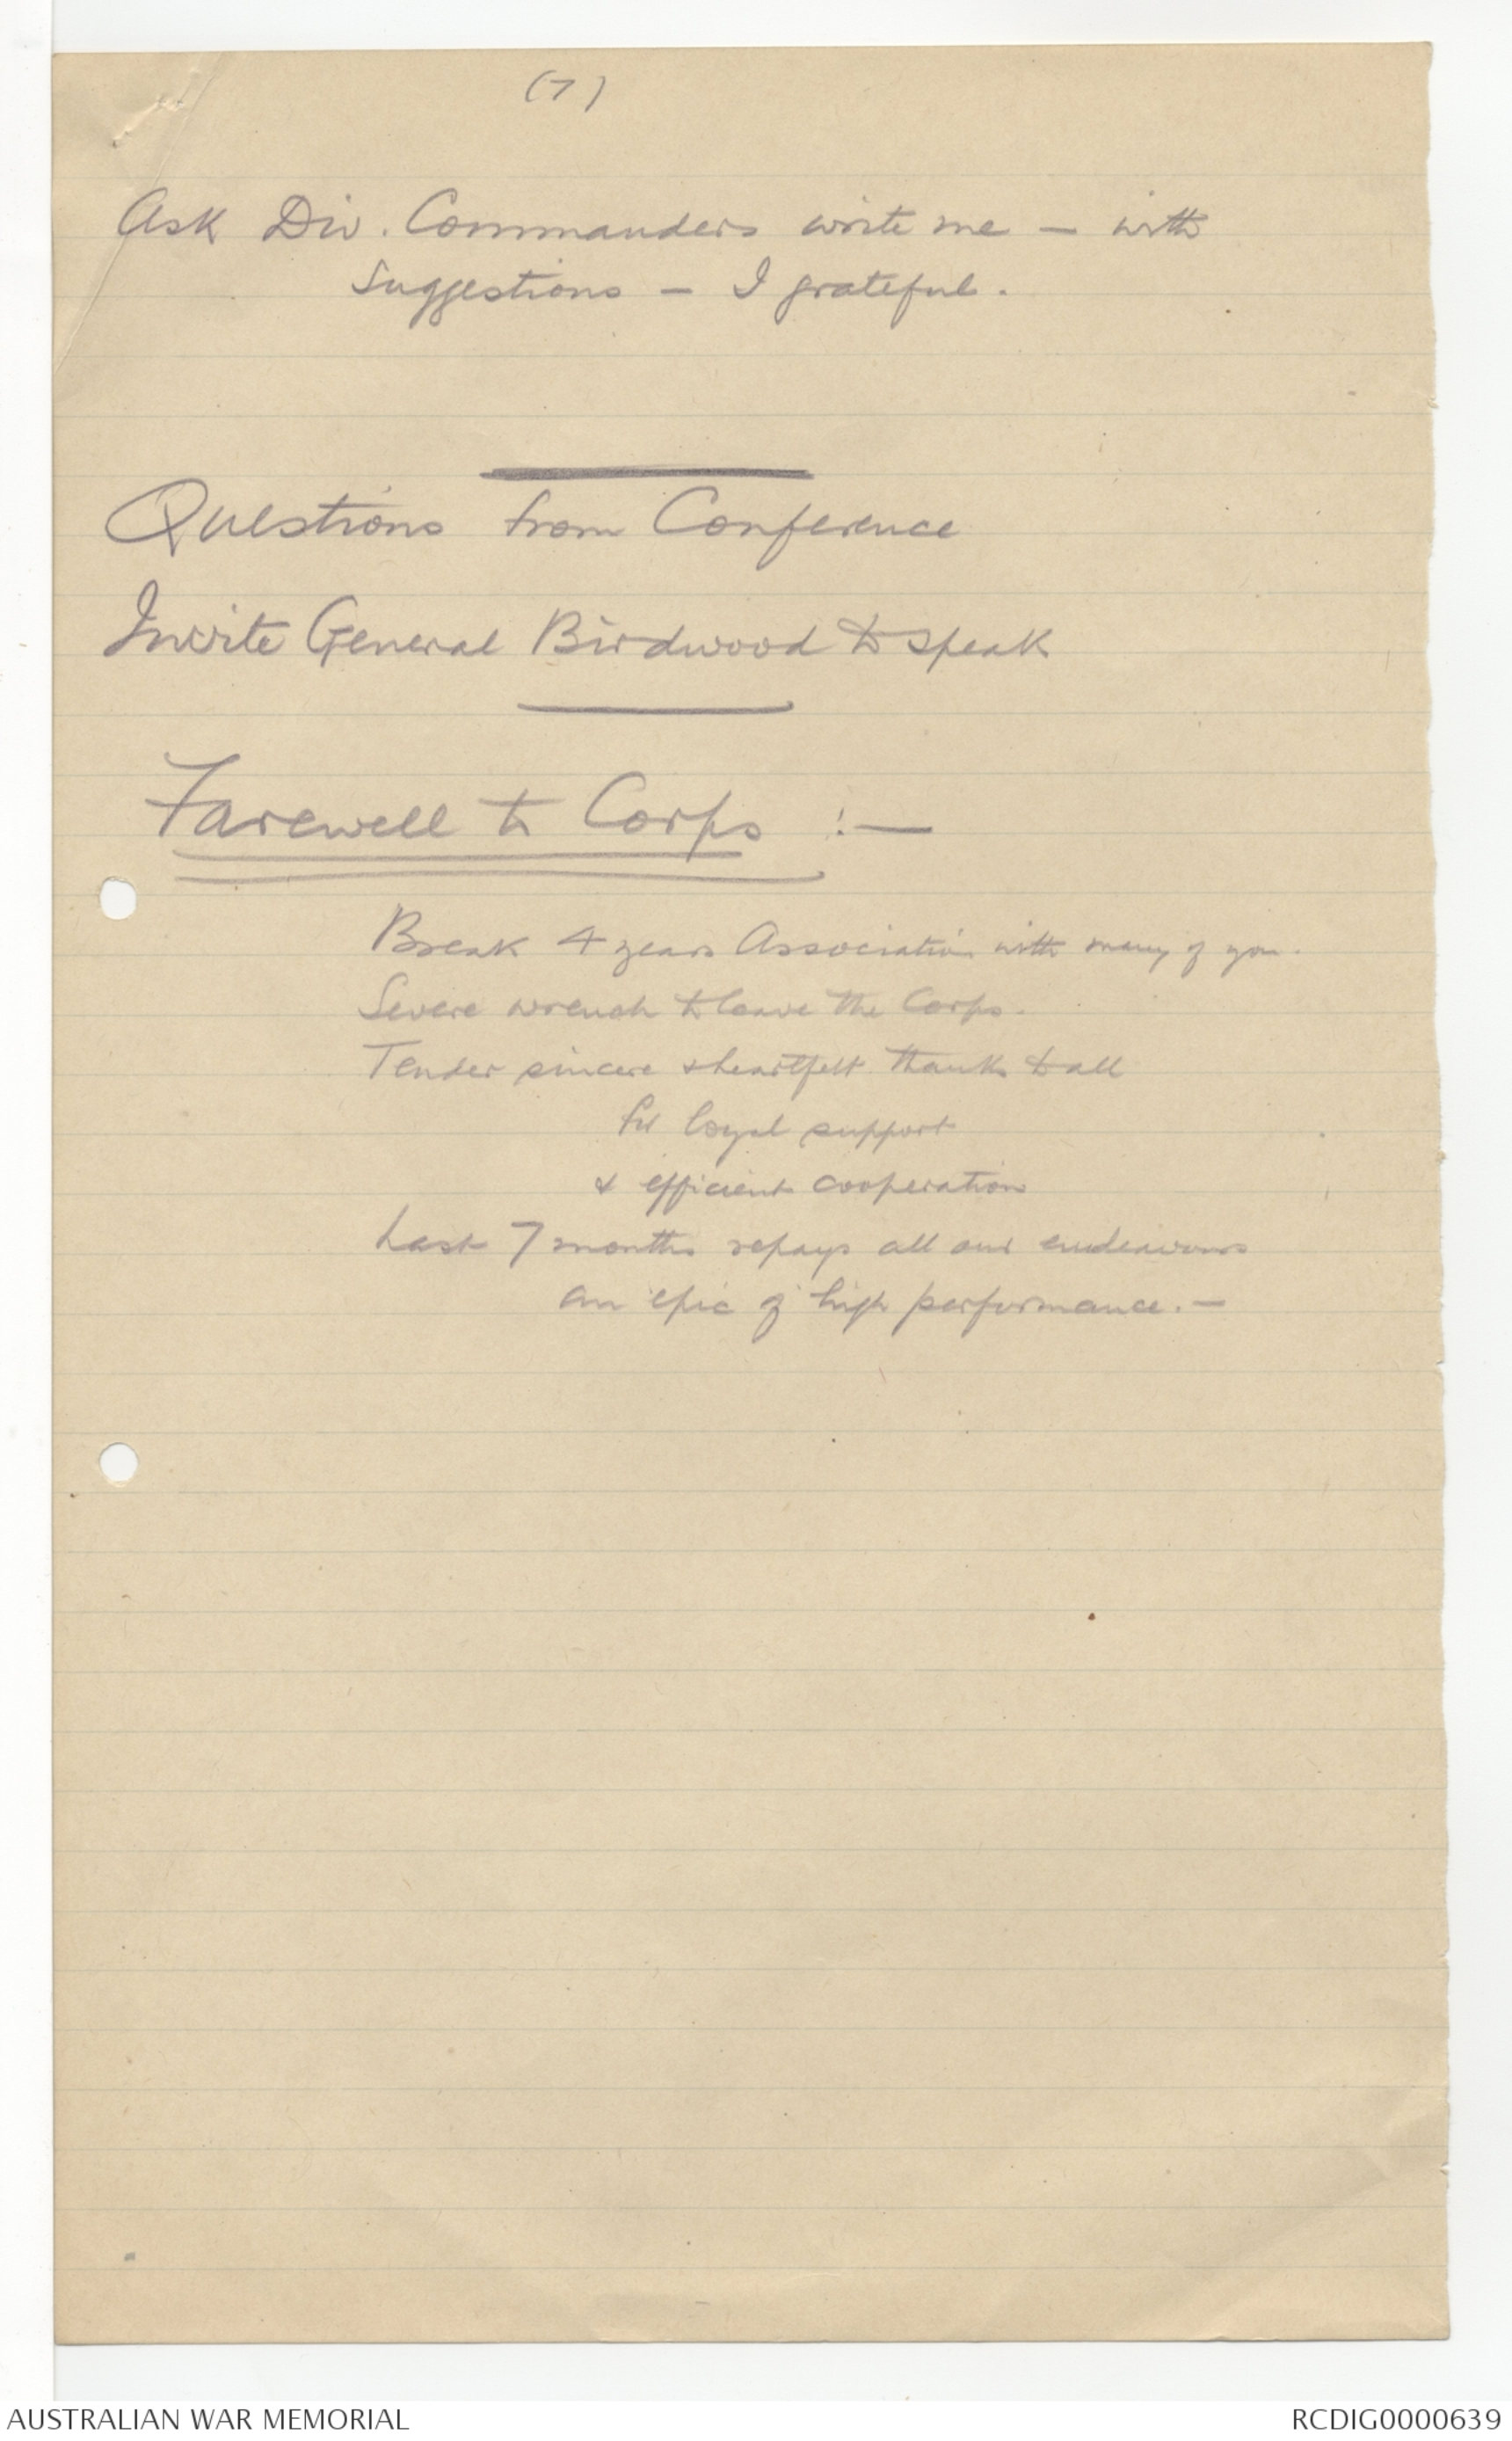 (7)
Ask Div. Commanders write me — with
suggestions — I grateful.
Questions from Conference
Invite General Birdwood to speak
Farewell to Corps :—
Break 4 years Association with many of you.
Severe wrench to leave the Corps.
Tender sincere & heartfelt thanks to all
for loyal support
& efficient cooperation
Last 7 months repays all our endeavours
an epic of high performance. —
AUSTRALIAN WAR MEMORIAL
RCDIG0000639